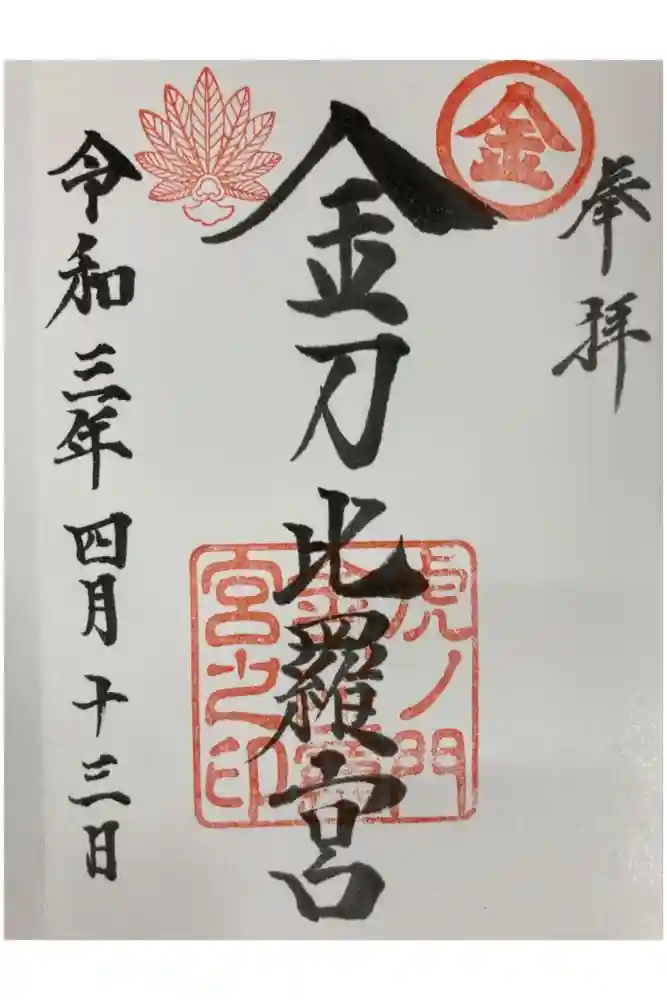 奉拝
金
金刀比羅宮
虎ノ門
金
宮之印
令和三年四月十三日